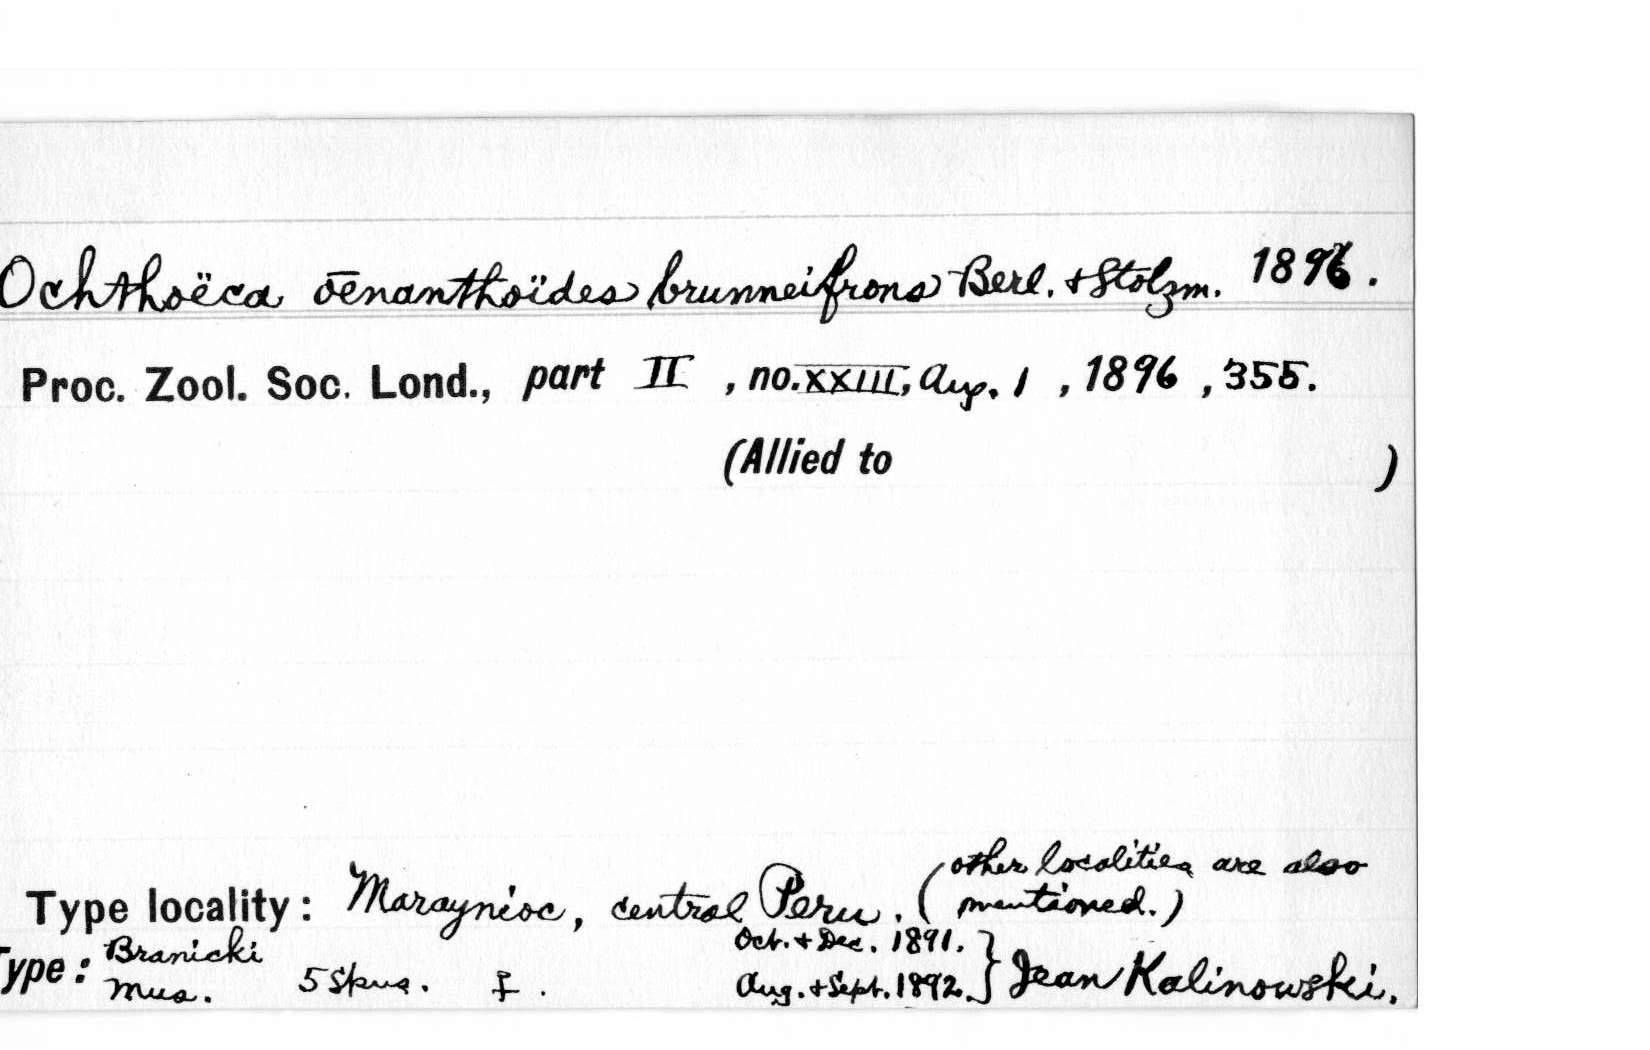 Ochthoëca œnanthoïdes brunneifrons Berl. & Stolzm. 1896.
Proc. Zool. Soc. Lond., part II, no. XXIII, Aug. 1, 1896, 355.
(Allied to )
(other localities are also
Type locality: Maraynioc, central Peru. mentioned.)
Branicki Oct. & Dec. 1891.
Type: Mus. 5 Skns. ♀. Aug. & Sept. 1892. } Jean Kalinowski.